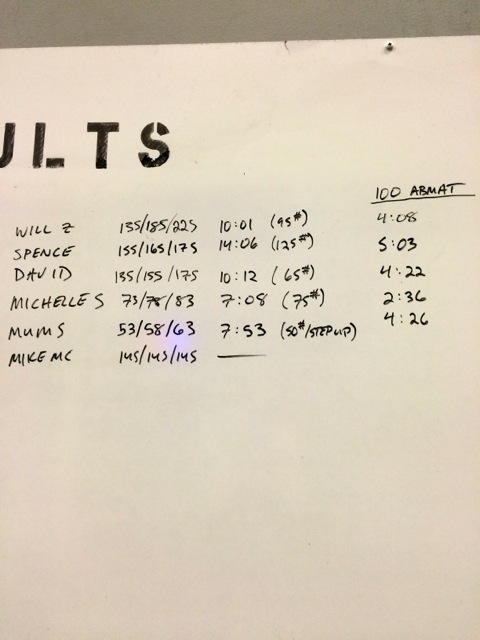 ULTS
100 ABMAT
WILL Z 135/185/225 10:01 (95#) 4:08
SPENCE 155/165/175 14:06 (125#) 5:03
DAVID 135/155/175 10:12 (65#) 4:22
MICHELLE S 73/78/83 7:08 (75#) 2:36
MUMS 53/58/63 7:53 (50#/STEP UP) 4:26
MIKE MC 145/145/145 —